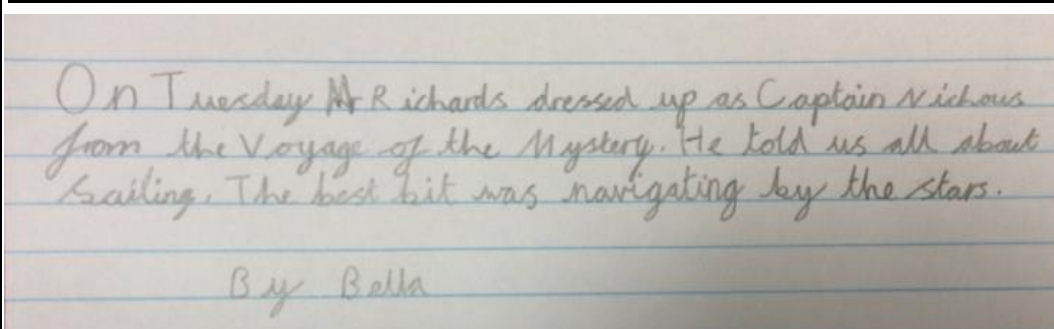 On Tuesday Mr Richards dressed up as Captain Nichous
from the Voyage of the Mystery. He told us all about
Sailing. The best bit was navigating by the stars.
By Bella